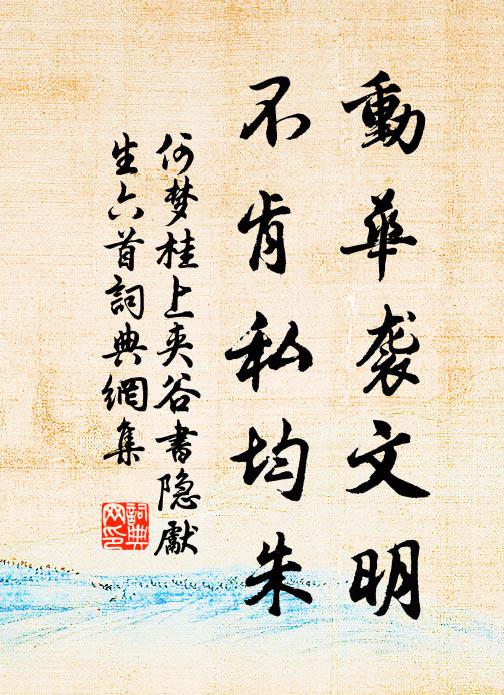 動華袭文明
不肯私均朱
何梦桂上夹谷書隐獻
生六首詞典網集
詞典
网印